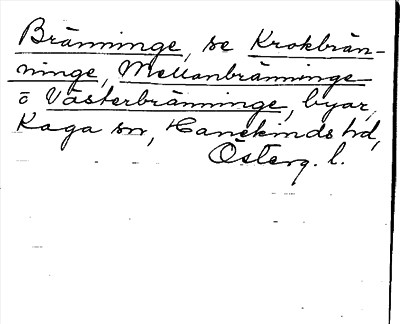 Bränninge, se Krokbrän-
ninge, Mellanbränninge
o Västerbränninge, byar,
Kaga sn, Hanekinds hd,
Österg. l.